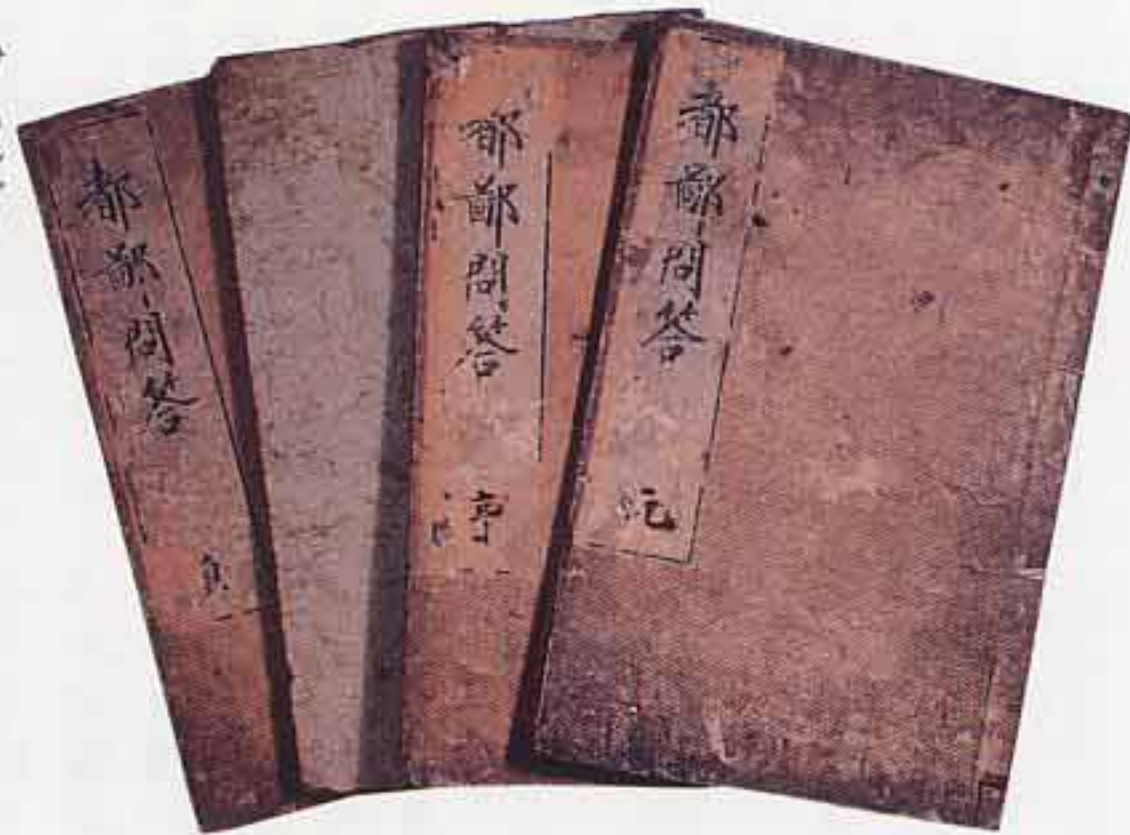 都鄙問答
元
都鄙問答
亨
都鄙問答
貞